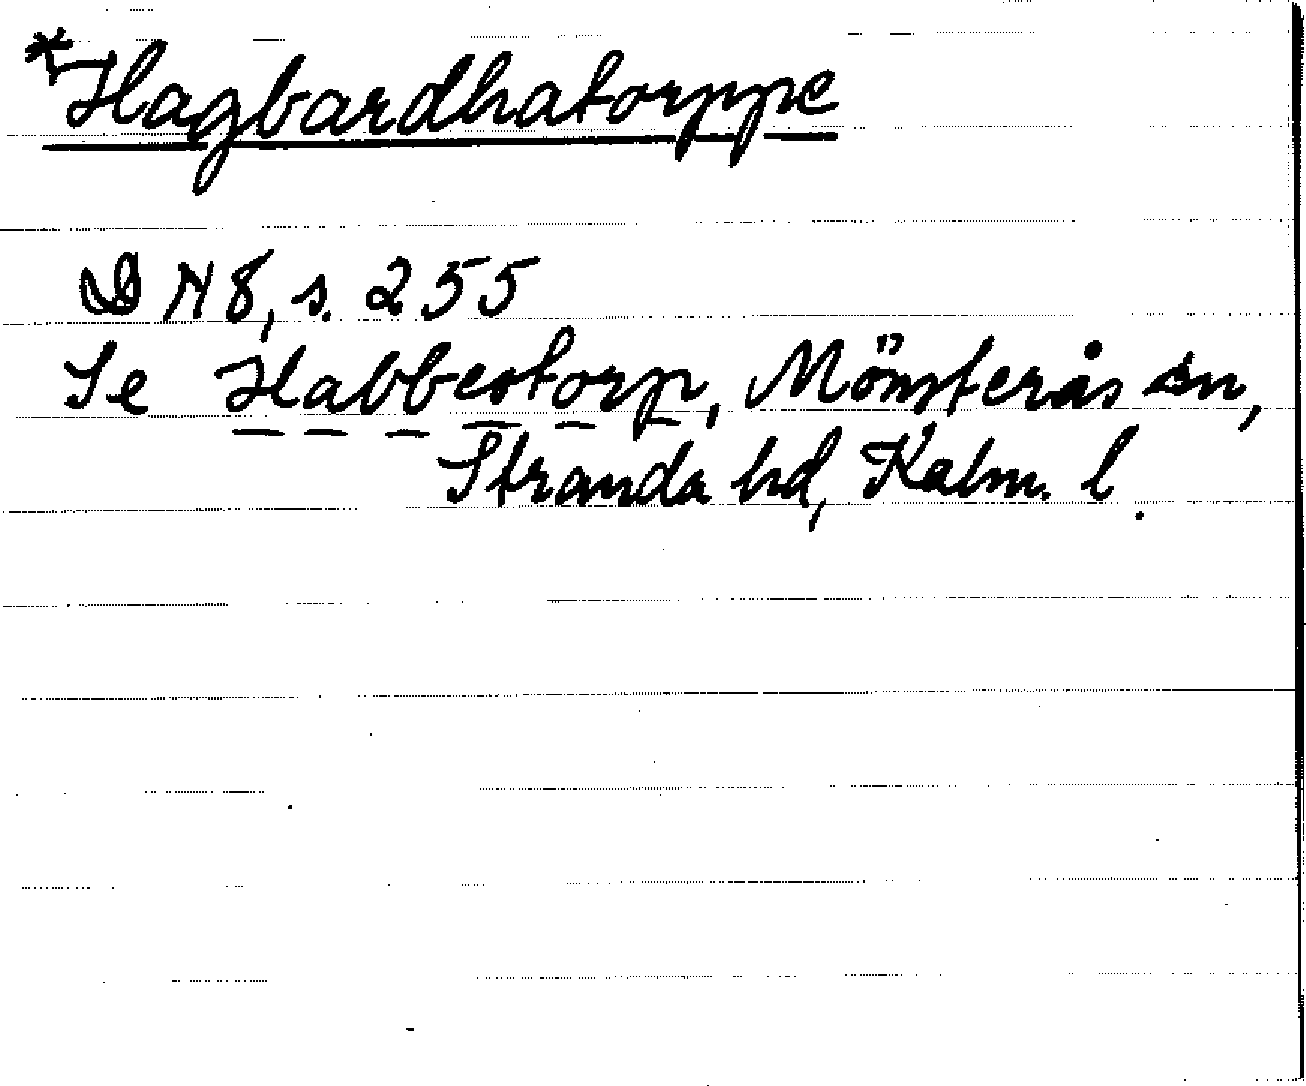 *Hagbardhatorppe
D N 8, s. 255
Se Habbestorp, Mönsterås sn,
Stranda hd, Kalm. l.